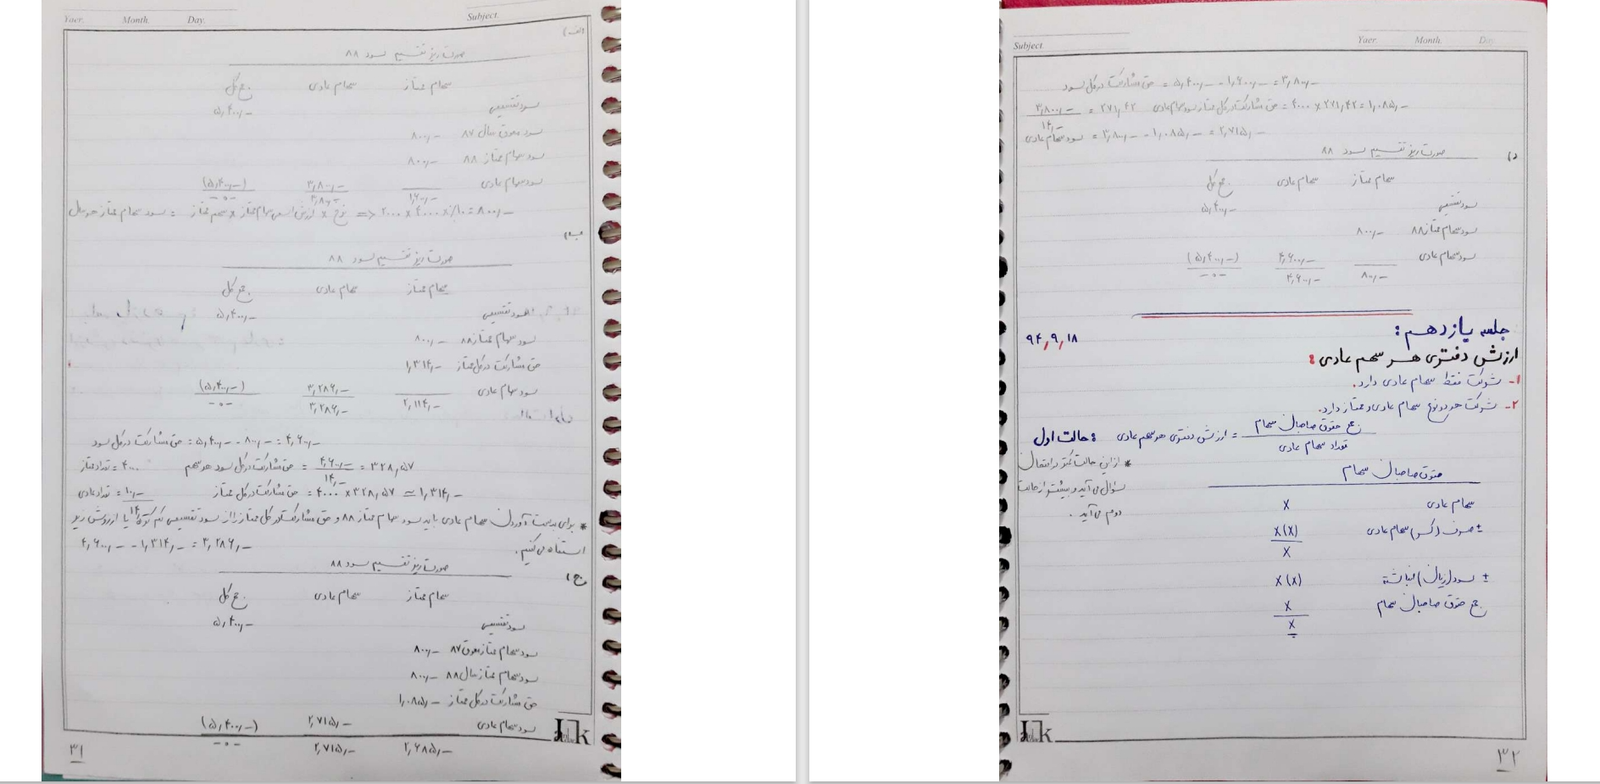 Yaer. Month. Day.
Subject
الف)
صورت ریز تقسیم سود ۸۸
سهام ممتاز سهام عادی جمع کل
سود تقسیمی ۵,۴۰۰,–
سود معوق سال ۸۷ ۸۰۰,–
سود سهام ممتاز ۸۸ ۸۰۰,–
سود سهام عادی ۳,۸۰۰,– (۵,۴۰۰,–)
۱,۶۰۰,– ۳,۸۰۰,– –۰–
سود سهام ممتاز هر سال = سهم ممتاز × ارزش اسمی سهام ممتاز × نرخ <= ۲۰۰۰ × ۴۰۰۰ × ٪۱۰ = ۸۰۰,–
ب)
صورت ریز تقسیم سود ۸۸
سهام ممتاز سهام عادی جمع کل
سود تقسیمی ۵,۴۰۰,–
سود سهام ممتاز ۸۸ ۸۰۰,–
حق مشارکت در کل ممتاز ۱,۳۱۴,–
سود سهام عادی ۳,۲۸۶,– (۵,۴۰۰,–)
۲,۱۱۴,– ۳,۲۸۶,– –۰–
حق مشارکت در کل سود = ۵,۴۰۰,– - ۸۰۰,– = ۴,۶۰۰,–
تعداد ممتاز = ۴۰۰۰ حق مشارکت در کل سود هر سهم = ۴,۶۰۰,– / ۱۴,– = ۳۲۸,۵۷
تعداد عادی = ۱۰,– حق مشارکت در کل ممتاز = ۴۰۰۰ × ۳۲۸,۵۷ ≃ ۱,۳۱۴,–
۱۴
* برای بدست آوردن سهام عادی باید سود سهام ممتاز ۸۸ و حق مشارکت در کل ممتاز را از سود تقسیمی کم کرد یا از روش زیر
استفاده می کنیم. ۴,۶۰۰,– - ۱,۳۱۴,– = ۳,۲۸۶,–
ج)
صورت ریز تقسیم سود ۸۸
سهام ممتاز سهام عادی جمع کل
سود تقسیمی ۵,۴۰۰,–
سود سهام ممتاز معوق ۸۷ ۸۰۰,–
سود سهام ممتاز سال ۸۸ ۸۰۰,–
حق مشارکت در کل ممتاز ۱,۰۸۵,–
سود سهام عادی ۲,۷۱۵,– (۵,۴۰۰,–)
۲,۶۸۵,– ۲,۷۱۵,– –۰–
۳۱
Subject
Yaer. Month. Day.
حق مشارکت در کل سود = ۵,۴۰۰,– - ۱,۶۰۰,– = ۳,۸۰۰,–
۳,۸۰۰,– / ۱۴,– = ۲۷۱,۴۲ حق مشارکت در کل ممتاز سود سهام عادی = ۴۰۰۰ × ۲۷۱,۴۲ = ۱,۰۸۵,–
سود سهام عادی = ۳,۸۰۰,– - ۱,۰۸۵,– = ۲,۷۱۵,–
د)
صورت ریز تقسیم سود ۸۸
سهام ممتاز سهام عادی جمع کل
سود تقسیمی ۵,۴۰۰,–
سود سهام ممتاز ۸۸ ۸۰۰,–
سود سهام عادی ۴,۶۰۰,– (۵,۴۰۰,–)
۸۰۰,– ۴,۶۰۰,– –۰–
جلسه یازدهم:
۹۴,۹,۱۸
ارزش دفتری هر سهم عادی:
۱- شرکت فقط سهام عادی دارد.
۲- شرکت هر دو نوع سهام عادی و ممتاز دارد.
حالت اول: ارزش دفتری هر سهم عادی = جمع حقوق صاحبان سهام / تعداد سهام عادی
* از این حالت کمتر در امتحان
سؤال می آید و بیشتر از حالت
دوم می آید.
حقوق صاحبان سهام
سهام عادی x
± صرف (کسر) سهام عادی x(x)
x
± سود (زیان) انباشته x(x)
جمع حقوق صاحبان سهام x
x
۳۲